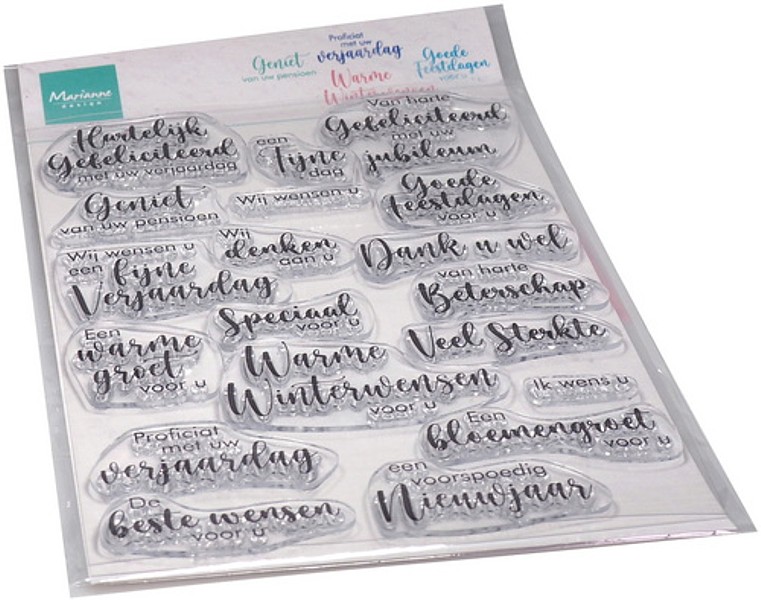 Marianne
DESIGN
Geniet
van uw pensioen
Proficiat
met uw
verjaardag
Warme
Winterwensen
Goede
Feestdagen
voor u
Hartelijk
Gefeliciteerd
met uw verjaardag
een
fijne
dag
Van harte
Gefeliciteerd
met uw
jubileum
Geniet
van uw pensioen
Wij wensen u
Goede
feestdagen
voor u
Wij wensen u
een fijne
Verjaardag
Wij
denken
aan u
Dank u wel
van harte
Beterschap
Speciaal
voor u
Veel Sterkte
Een
warme
groet
voor u
Warme
Winterwensen
voor u
Ik wens u
Een
bloemengroet
voor u
Proficiat
met uw
verjaardag
een
voorspoedig
Nieuwjaar
De
beste wensen
voor u